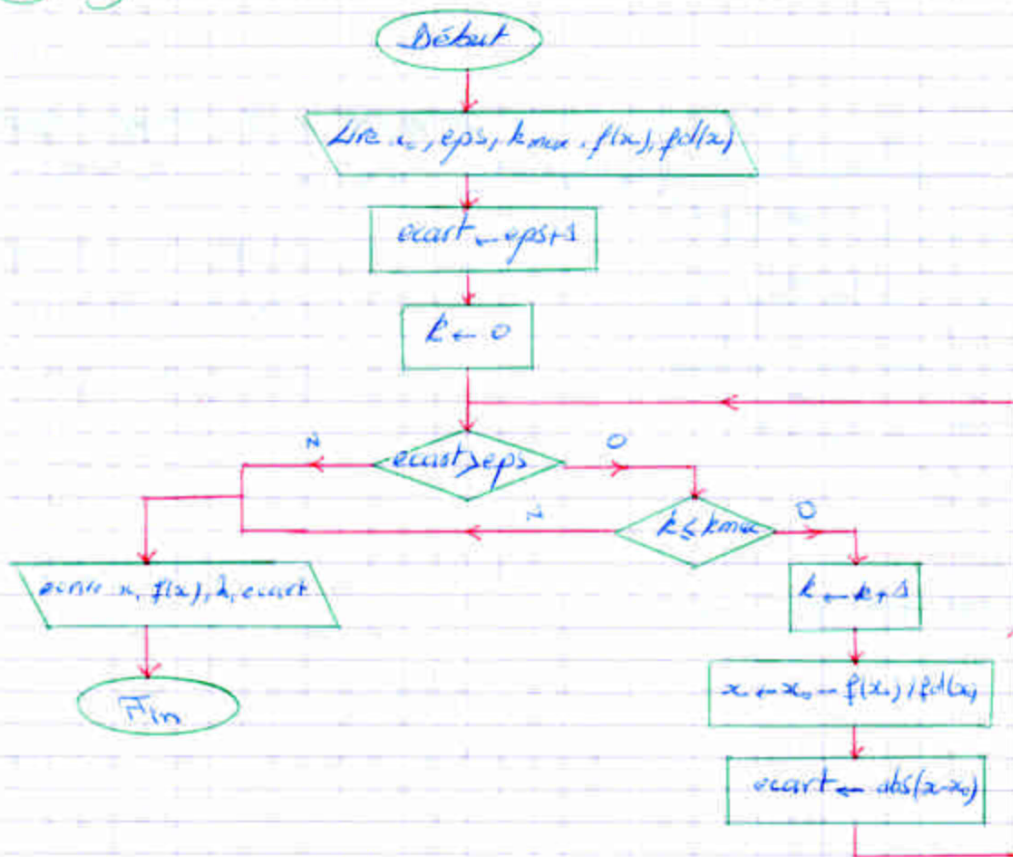 Début
Lire x₀, eps, kmax, f(x), fd(x)
ecart ← eps+1
k ← 0
ecart>eps
N
O
k≤kmax
N
O
ecrire x, f(x), k, ecart
k ← k+1
x ← x₀ - f(x₀)/fd(x₀)
Fin
ecart ← abs(x-x₀)